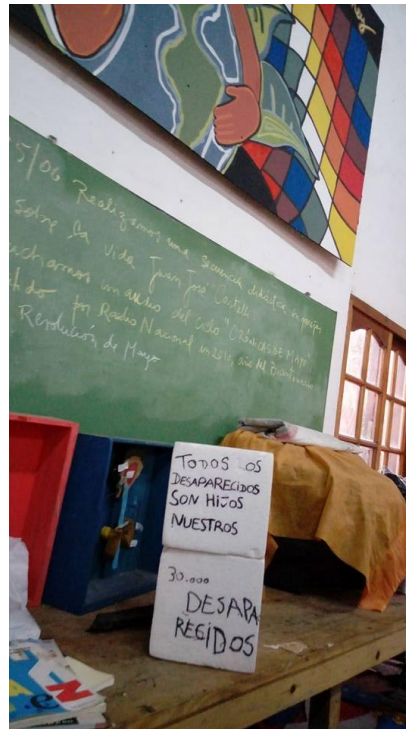 5/06 Realizamos una secuencia didáctica en
sobre la vida Juan José Castelli
uchamos un audio del ciclo "CRÓNICAS DE MAYO"
tido por Radio Nacional en 2010, año del Bicentenario
Revolución de Mayo
TODOS LOS
DESAPARECIDOS
SON HIJOS
NUESTROS
30.000
DESAPA
RECIDOS